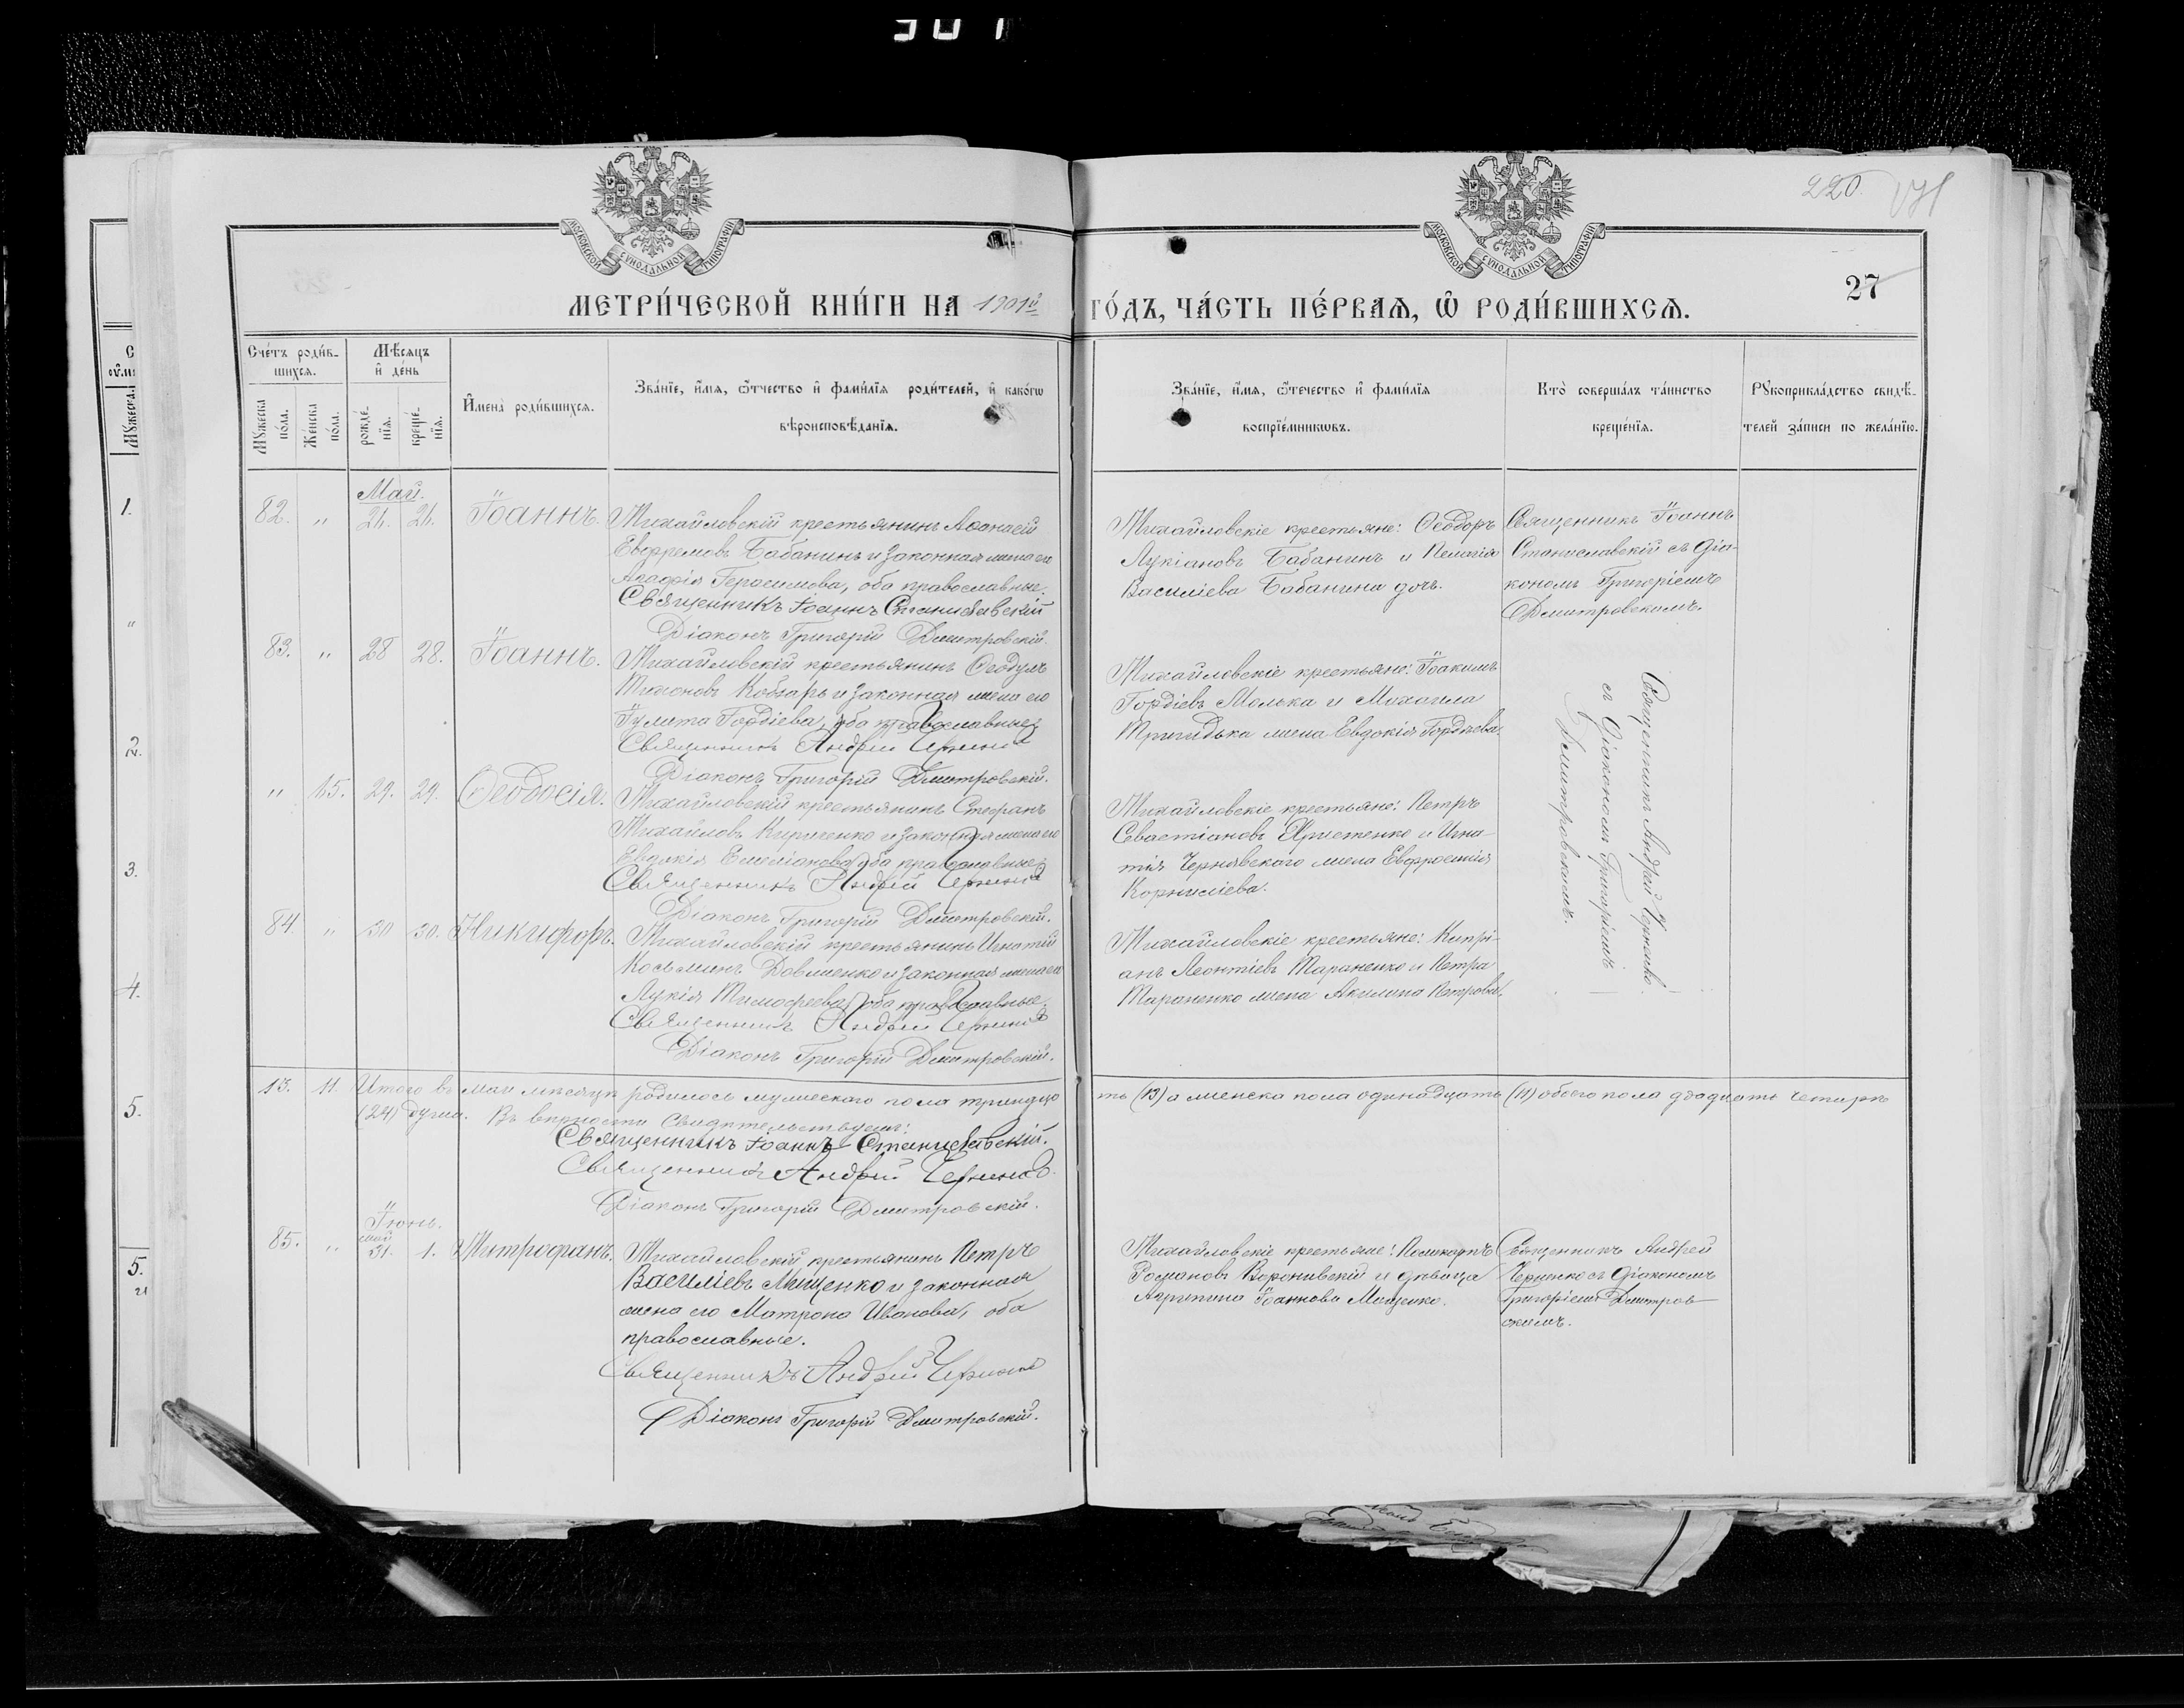 220.
27
МОСКОВСКОЙ СѴНОДАЛЬНОЙ ТИПОГРАФІИ
МОСКОВСКОЙ СѴНОДАЛЬНОЙ ТИПОГРАФІИ
МЕТРИ́ЧЕСКОЙ КНИ́ГИ НА 1901й
ГО́ДЪ, ЧА́СТЬ ПЕ́РВАѦ, Ѽ РОДИ́ВШИХСѦ.
Сче́тъ роди́в-
шихсѧ.
Мѣ́сяцъ
и҆ де́нь
Мꙋ́жеска
по́ла.
Же́нска
по́ла.
рожде́-
нїѧ.
креще́-
нїѧ.
И҆мена̀ роди́вшихсѧ.
Зва́нїе, и҆́мѧ, ѻ҆́тчество и҆ фами́лїѧ роди́телей, и҆ како́гѡ
вѣроисповѣ́данїѧ.
Зва́нїе, и҆́мѧ, ѻ҆те́чество и҆ фами́лїѧ
воспрїе́мникѡвъ.
Кто̀ соверша́лъ та́инство
креще́нїѧ.
Рꙋкоприкла́дство свидѣ́-
телей за́писи по жела́нїю.
Май.
82. „ 24. 24. Іоаннъ.
Михайловскій крестьянинъ Аѳанасій
Евфремовъ Бабанинъ и законная жена его
Агафія Герасимова, оба православные.
Священникъ Іоаннъ Станиславскій
Діаконъ Григорій Дмитровскій.
Михайловскіе крестьяне: Ѳеодоръ
Лукіановъ Бабанинъ и Пелагія
Василіева Бабанина дочь.
Священникъ Іоаннъ
Станиславскій съ Діа-
кономъ Григоріемъ
Дмитровскимъ.
83. „ 28 28. Іоаннъ.
Михайловскій крестьянинъ Ѳеодулъ
Тихоновъ Кобзарь и законная жена его
Іулита Гордіева, оба православные
Священникъ Андрей Черненко
Діаконъ Григорій Дмитровскій.
Михайловскіе крестьяне: Іоакимъ
Гордіевъ и Михаила
жена Евдокія Гордіева.
Священникъ Андрей Черненко
съ Діакономъ Григоріемъ
Дмитровскимъ.
„ 15. 29. 29. Ѳеодосія.
Михайловскій крестьянинъ Стефанъ
Михайловъ Кириченко и законная жена его
Евдокія Емеліанова оба православные
Священникъ Андрей Черненко
Діаконъ Григорій Дмитровскій.
Михайловскіе крестьяне: Петръ
Севастіановъ Христенко и Игна-
тія Чернявского жена Евфросинія
Корниліева.
84. „ 30 30. Никифоръ.
Михайловскій крестьянинъ Игнатій
Косьминъ Довженко и законная жена его
Лукія Тимофеева, оба православные.
Священникъ Андрей Черненко
Діаконъ Григорій Дмитровскій.
Михайловскіе крестьяне: Кипрі-
анъ Леонтіевъ Тараненко и Петра
Тараненко жена Акилина Петрова.
13. 11. Итого въ маѣ мѣсяцѣ родилось мужескаго пола тринадца
ть (13) а женска пола одинадцать (11) обоего пола двадцать четыре
(24) души. Въ вѣрности свидѣтельствуемъ:
Священникъ Іоаннъ Станиславскій.
Священникъ Андрей Черненко.
Діаконъ Григорій Дмитровскій.
Іюнь.
май
85. „ 31. 1. Митрофанъ.
Михайловскій крестьянинъ Петръ
Василіевъ Мищенко и законная
жена его Матрона Иванова, оба
православные.
Священникъ Андрей Черненко
Діаконъ Григорій Дмитровскій.
Михайловскіе крестьяне: Поликарпъ
Романовъ и дѣвица
Агрипина Іоаннова Мищенко.
Священникъ Андрей
Черненко съ Діакономъ
Григоріемъ Дмитров-
скимъ.